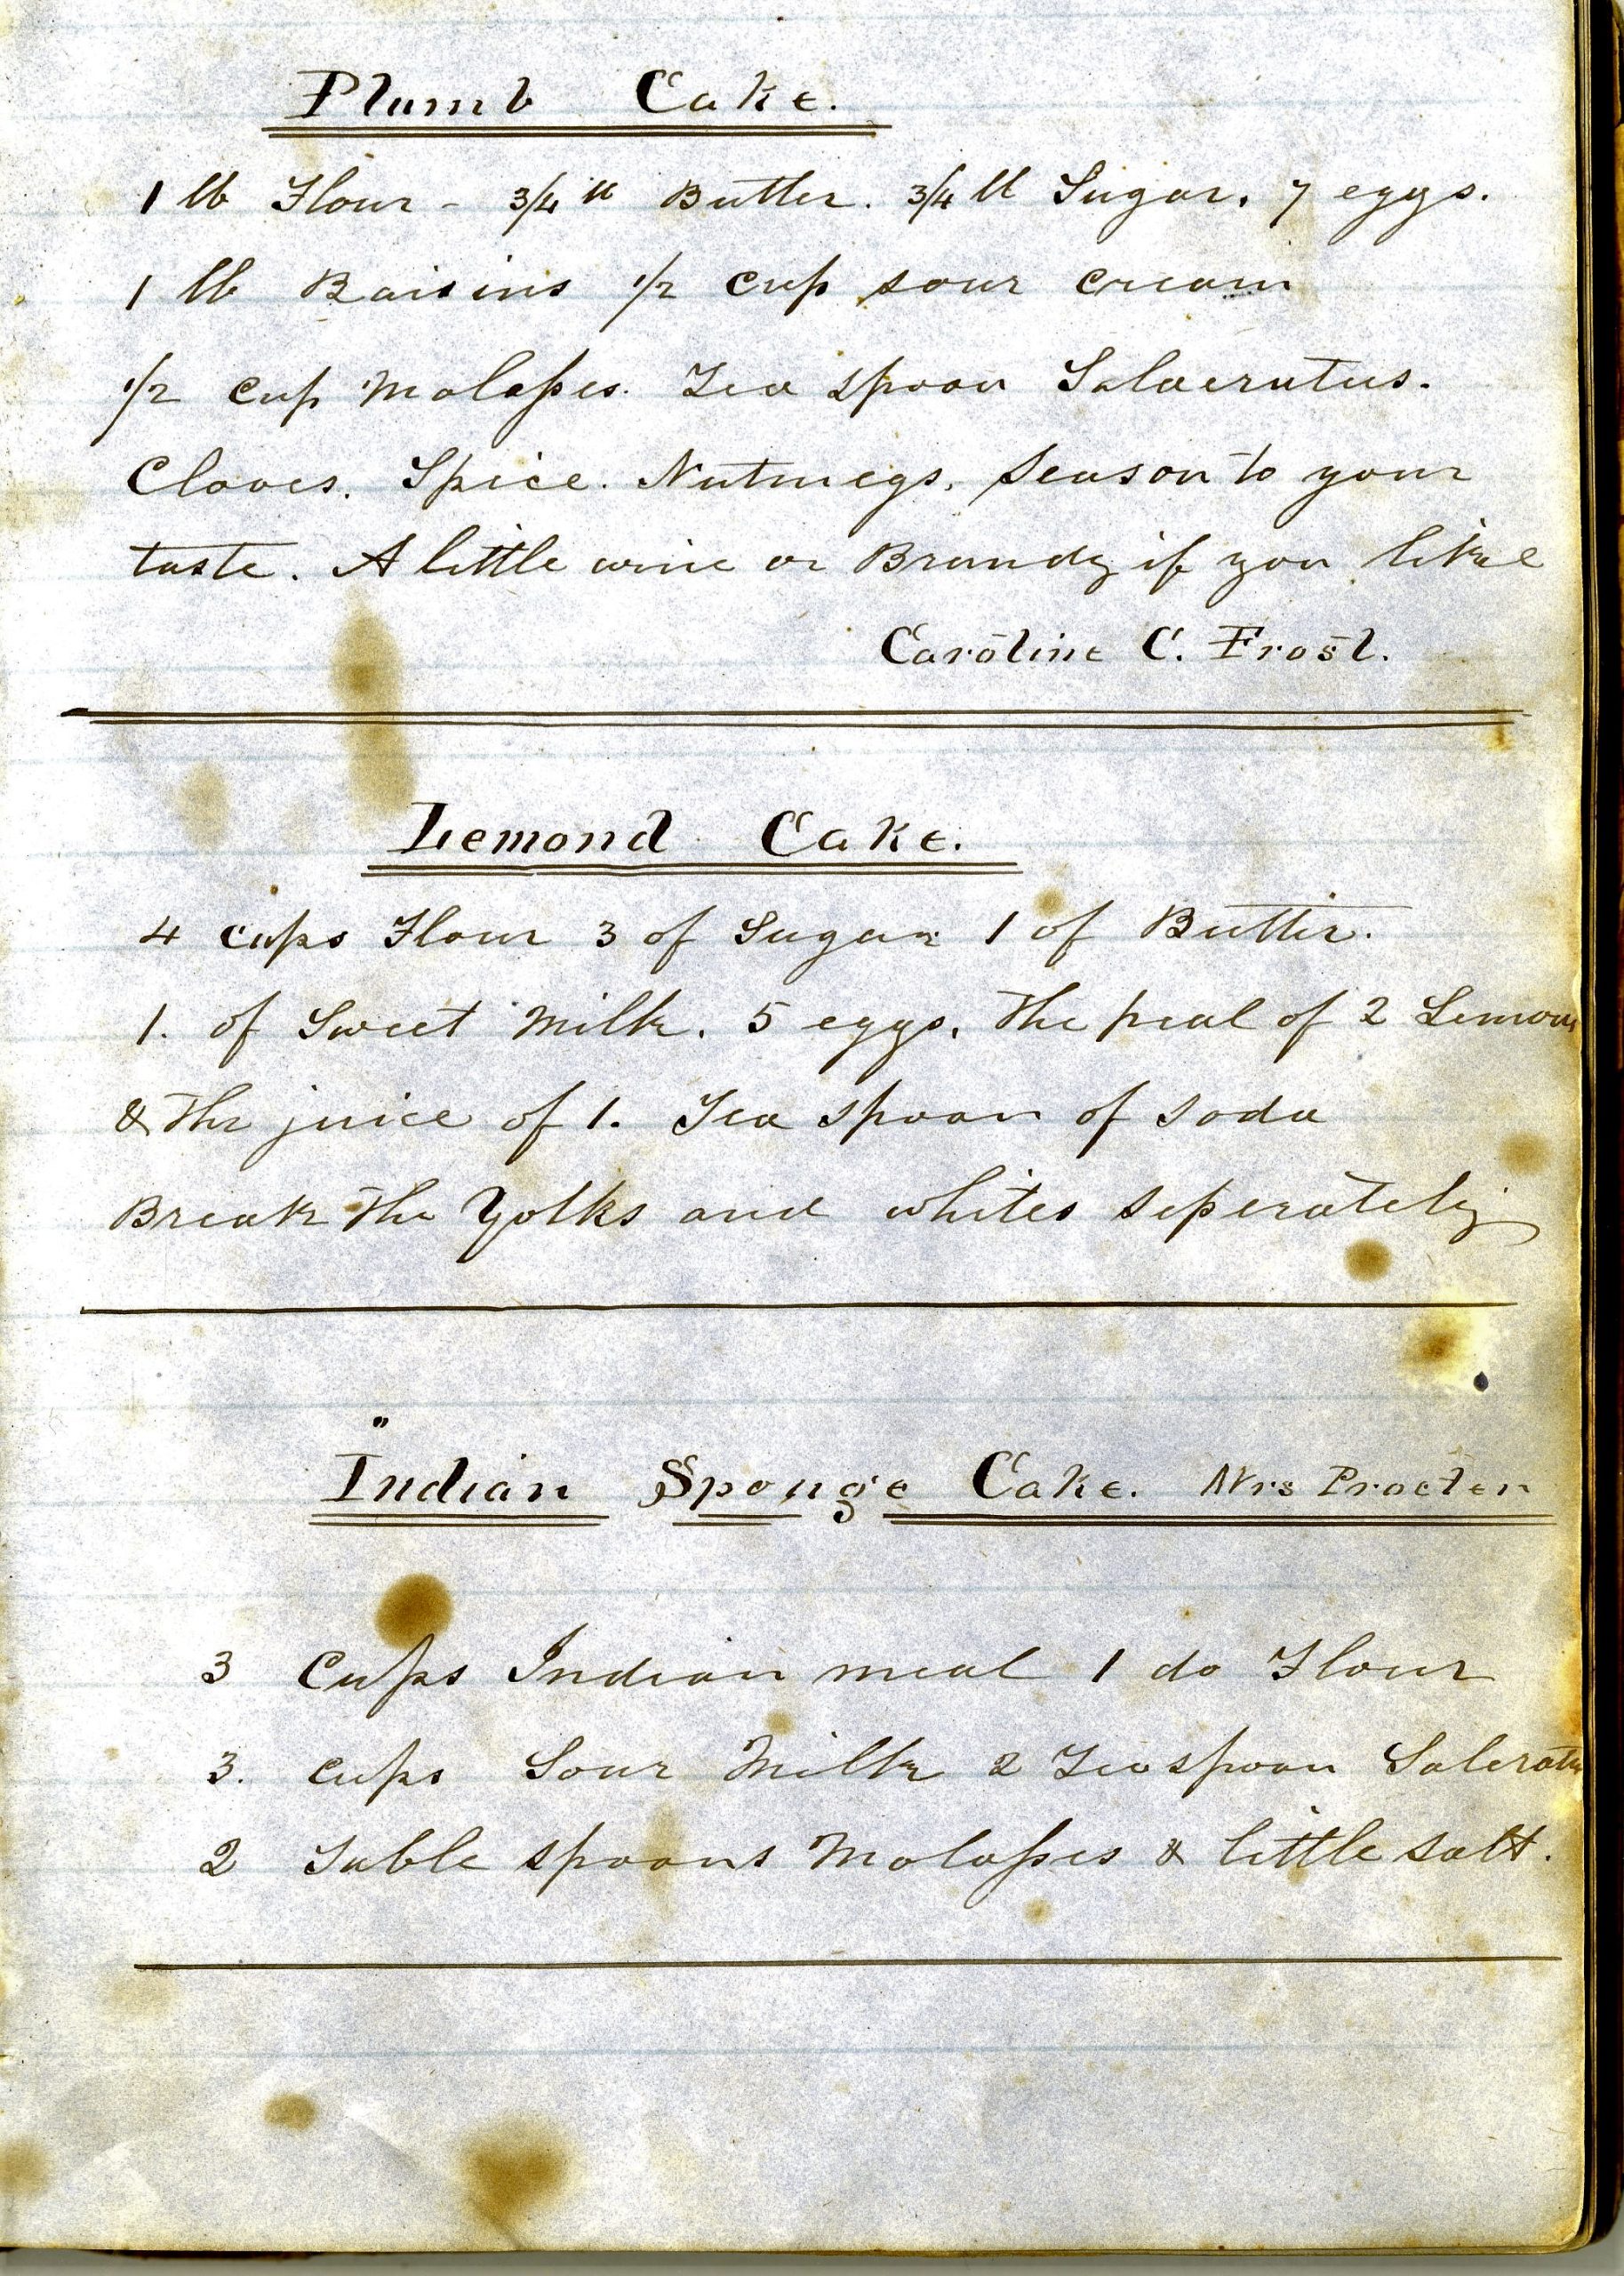 Plumb Cake.
1 lb Flour - 3/4 lb Butter. 3/4 lb Sugar. 7 eggs.
1 lb Raisins 1/2 cup sour cream
1/2 cup Molaſses. Tea spoon Salaeratus.
Cloves. Spice. Nutmegs. Season to your
taste. A little wine or Brandy if you like
Caroline C. Frost.
Lemond Cake.
4 cups Flour 3 of Sugar 1 of Butter.
1. of Sweet Milk. 5 eggs. The peal of 2 Lemons
& The juice of 1. Tea spoon of soda
Break The Yolks and whites seperately
Indian Sponge Cake. Mrs Procter
3 Cups Indian meal 1 do Flour
3. cups Sour Milk 2 Teaspoon Saleratus
2 Table spoons Molaſses & little salt.